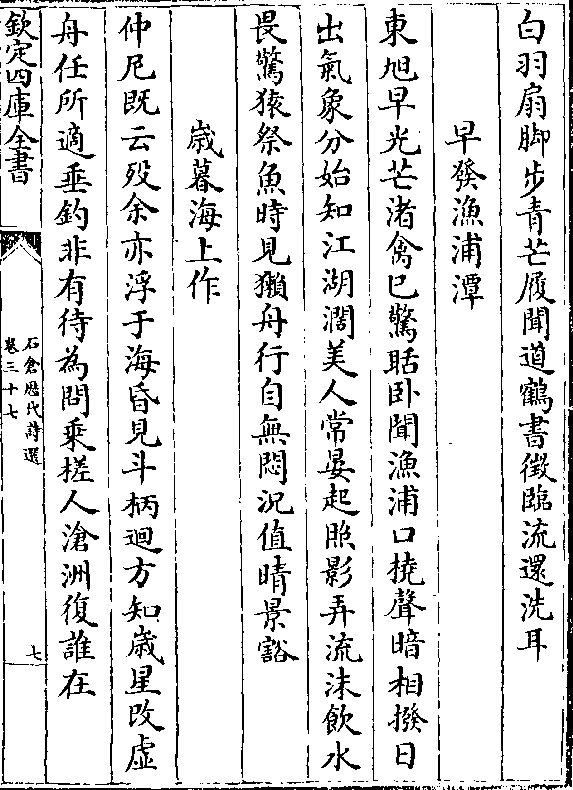 白羽扇脚步青芒履聞道鶴書徵臨流還洗耳
早發漁浦潭
東旭早光芒渚禽已驚聒卧聞漁浦口橈聲暗相撥日
出氣象分始知江湖濶美人常晏起照影弄流沫飲水
畏驚猿祭魚時見獺舟行自無悶况值晴景豁
歲暮海上作
仲尼既云殁余亦浮于海昏見斗柄迴方知歲星改虛
舟任所適垂釣非有待為問乘槎人滄洲復誰在
欽定四庫全書
石倉歷代詩選
卷三十七
七